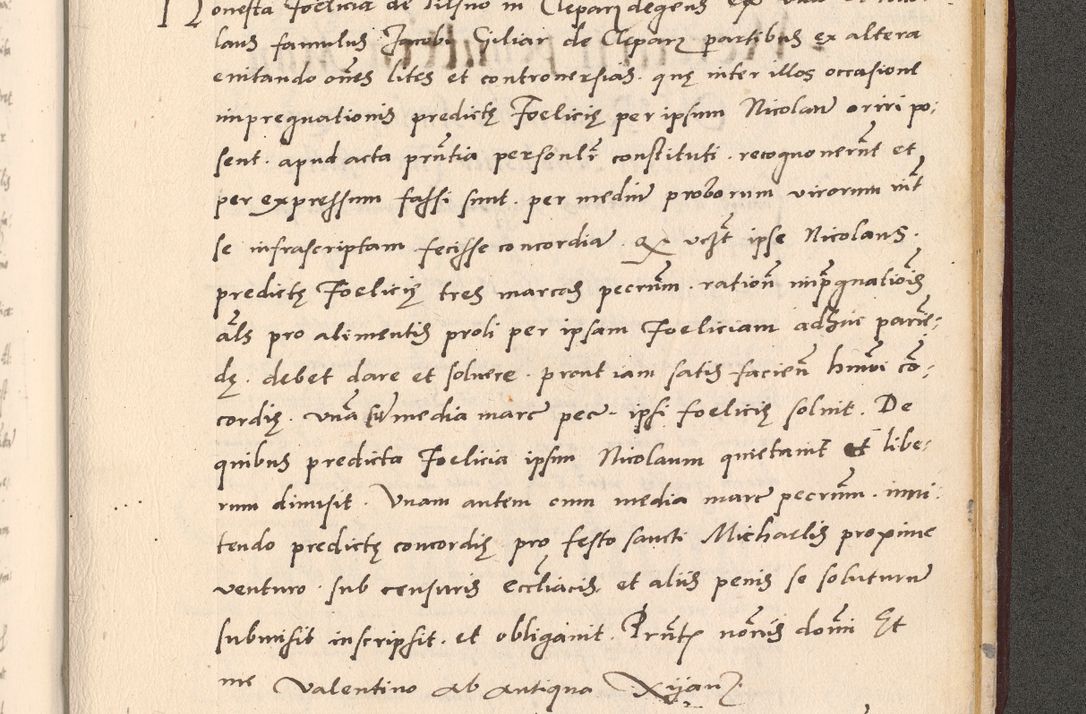 onesta Foelicia de Pilsno in Cleparz degens ex una et Nico
laus famulus Jacobi Giliar de Cleparz partibus ex altera
euitando om̃es lites et controuersias. quę inter illos occasione
impregnationis predictę Foelicię per ipsum Nicolaũ oriri po:
sent. apud acta pñtia personlr̃ constituti. recognouerũt et
per expressum fassi sunt. per mediũ proborum virorum int̃
se infrascriptam fecisse concordiã. Qx vcꝫt ipse Nicolaus.
predictę Foelicię tres marcas pecuñm. ratioñ imp̃gnatiõis
als̃ pro alimentis proli per ipsam Foeliciam adhuc pariẽ:
dę. debet dare et soluere. prout iam satis facieñ hm̃oi cõ:
cordię. vnã cũ media marc̃ pec. ipsi foelicię soluit. De
quibus predicta Foelicia ipsum Nicolaum quietauit et libe:
rum dimisit. Vnam autem cum media marc̃ pecuñm. inni:
tendo predictę concordię pro festo sancti Michaelis proxime
venturo. sub censuris eccl̃iacis et aliis penis se soluturũ
submisit inscripsit. et obligauit. Pñtꝫ nob̃is dom̃i Et
me Valentino ab antiqua